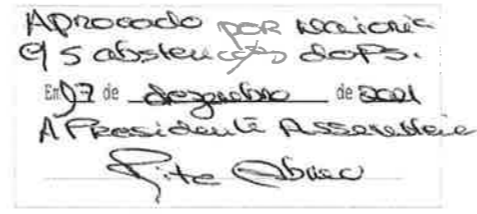 Aprovado por maioria
C/ 5 abstenções do PS.
Em 07 de dezembro de 2021
A Presidente Assembleia
Rita Abreu